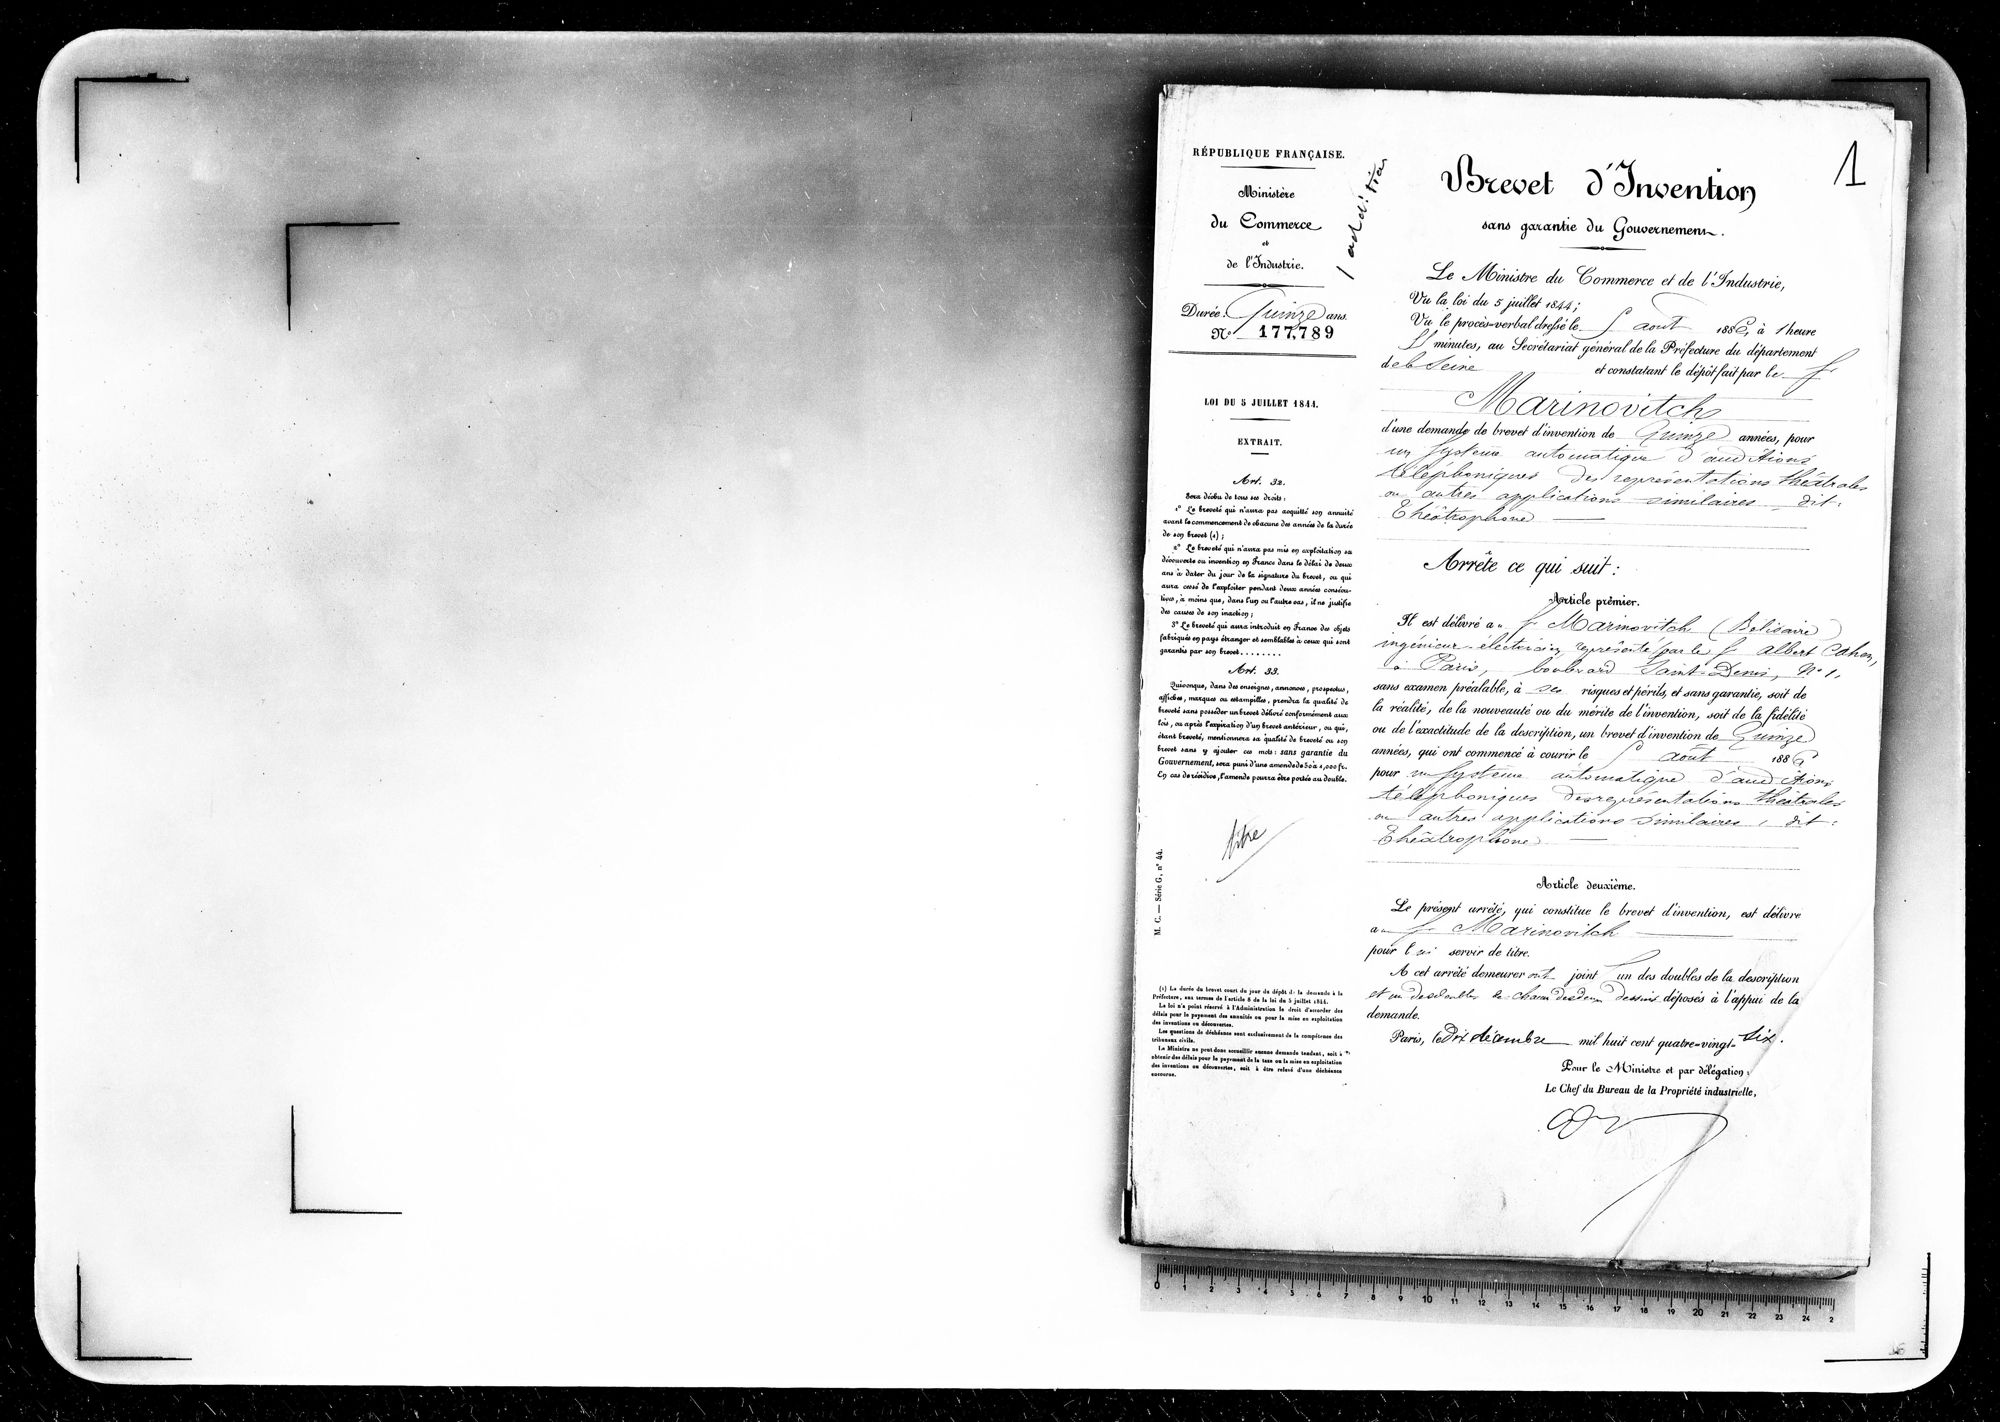 RÉPUBLIQUE FRANÇAISE.
Ministère
du Commerce
et
de l'Industrie.
Durée: Quinze ans.
N° 177,789
1 addition
LOI DU 5 JUILLET 1844.
EXTRAIT.
Art. 32.
Sera déchu de tous ses droits:
1° Le breveté qui n'aura pas acquitté son annuité
avant le commencement de chacune des années de la durée
de son brevet (1);
2° Le breveté qui n'aura pas mis en exploitation sa
découverte ou invention en France dans le délai de deux
ans à dater du jour de la signature du brevet, ou qui
aura cessé de l'exploiter pendant deux années consécu-
tives, à moins que, dans l'un ou l'autre cas, il ne justifie
des causes de son inaction;
3° Le breveté qui aura introduit en France des objets
fabriqués en pays étranger et semblables à ceux qui sont
garantis par son brevet........
Art. 33.
Quiconque, dans des enseignes, annonces, prospectus,
affiches, marques ou estampilles, prendra la qualité de
breveté sans posséder un brevet délivré conformément aux
lois, ou après l'expiration d'un brevet antérieur, ou qui,
étant breveté, mentionnera sa qualité de breveté ou son
brevet sans y ajouter ces mots: sans garantie du
Gouvernement, sera puni d'une amende de 50 à 1,000 fr.
En cas de récidive, l'amende pourra être portée au double.
titre
M. C. — Série G, n° 44.
(1) La durée du brevet court du jour du dépôt de la demande à la
Préfecture, aux termes de l'article 8 de la loi du 5 juillet 1844.
La loi n'a point réservé à l'Administration le droit d'accorder des
délais pour le payement des annuités ou pour la mise en exploitation
des inventions ou découvertes.
Les questions de déchéance sont exclusivement de la compétence des
tribunaux civils.
Le Ministre ne peut donc accueillir aucune demande tendant, soit à
obtenir des délais pour le payement de la taxe ou la mise en exploitation
des inventions ou découvertes, soit à être relevé d'une déchéance
encourue.
1
Brevet d'Invention
sans garantie du Gouvernement.
Le Ministre du Commerce et de l'Industrie,
Vu la loi du 5 juillet 1844;
Vu le procès-verbal dressé le août 1886, à 1 heure
minutes, au Secrétariat général de la Préfecture du département
de la Seine et constatant le dépôt fait par le S.
Marinovitch
d'une demande de brevet d'invention de Quinze années, pour
un Système automatique d'auditions
téléphoniques des représentations théâtrales
ou autres applications similaires, dit:
Théâtrophone
Arrête ce qui suit:
Article premier.
Il est délivré au S. Marinovitch (Belisaire)
ingénieur électricien, représenté par le S. Albert Cahen,
à Paris, boulevard Saint-Denis, N° 1,
sans examen préalable, à ses risques et périls, et sans garantie, soit de
la réalité, de la nouveauté ou du mérite de l'invention, soit de la fidélité
ou de l'exactitude de la description, un brevet d'invention de Quinze
années, qui ont commencé à courir le août 1886
pour un Système automatique d'auditions
téléphoniques des représentations théâtrales
ou autres applications similaires, dit:
Théâtrophone
Article deuxième.
Le présent arrêté, qui constitue le brevet d'invention, est délivré
au S. Marinovitch
pour lui servir de titre.
A cet arrêté demeureront joint un des doubles de la description
et un des doubles de chacun des deux dessins déposés à l'appui de la
demande.
Paris, le Dix décembre mil huit cent quatre-vingt-six.
Pour le Ministre et par délégation:
Le Chef du Bureau de la Propriété industrielle,
0 1 2 3 4 5 6 7 8 9 10 11 12 13 14 15 16 17 18 19 20 21 22 23 24 2